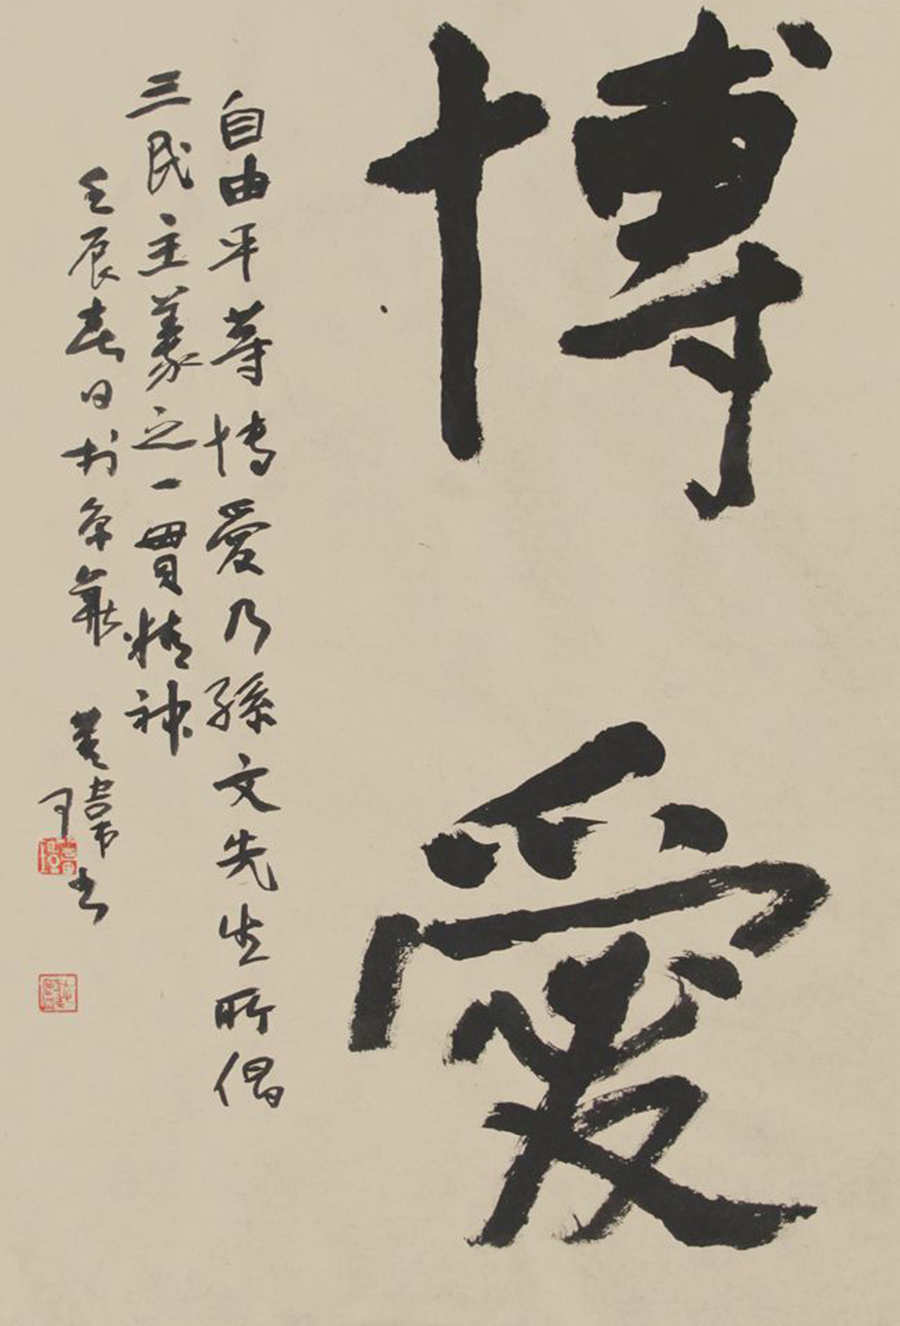 博愛
自由平等博愛乃孫文先生所倡
三民主義之一貫精神
壬辰春日於京華 黃瑋书